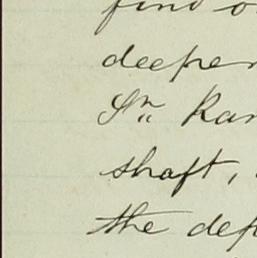 find o
deeper
Sn Ran
shaft,
the dep